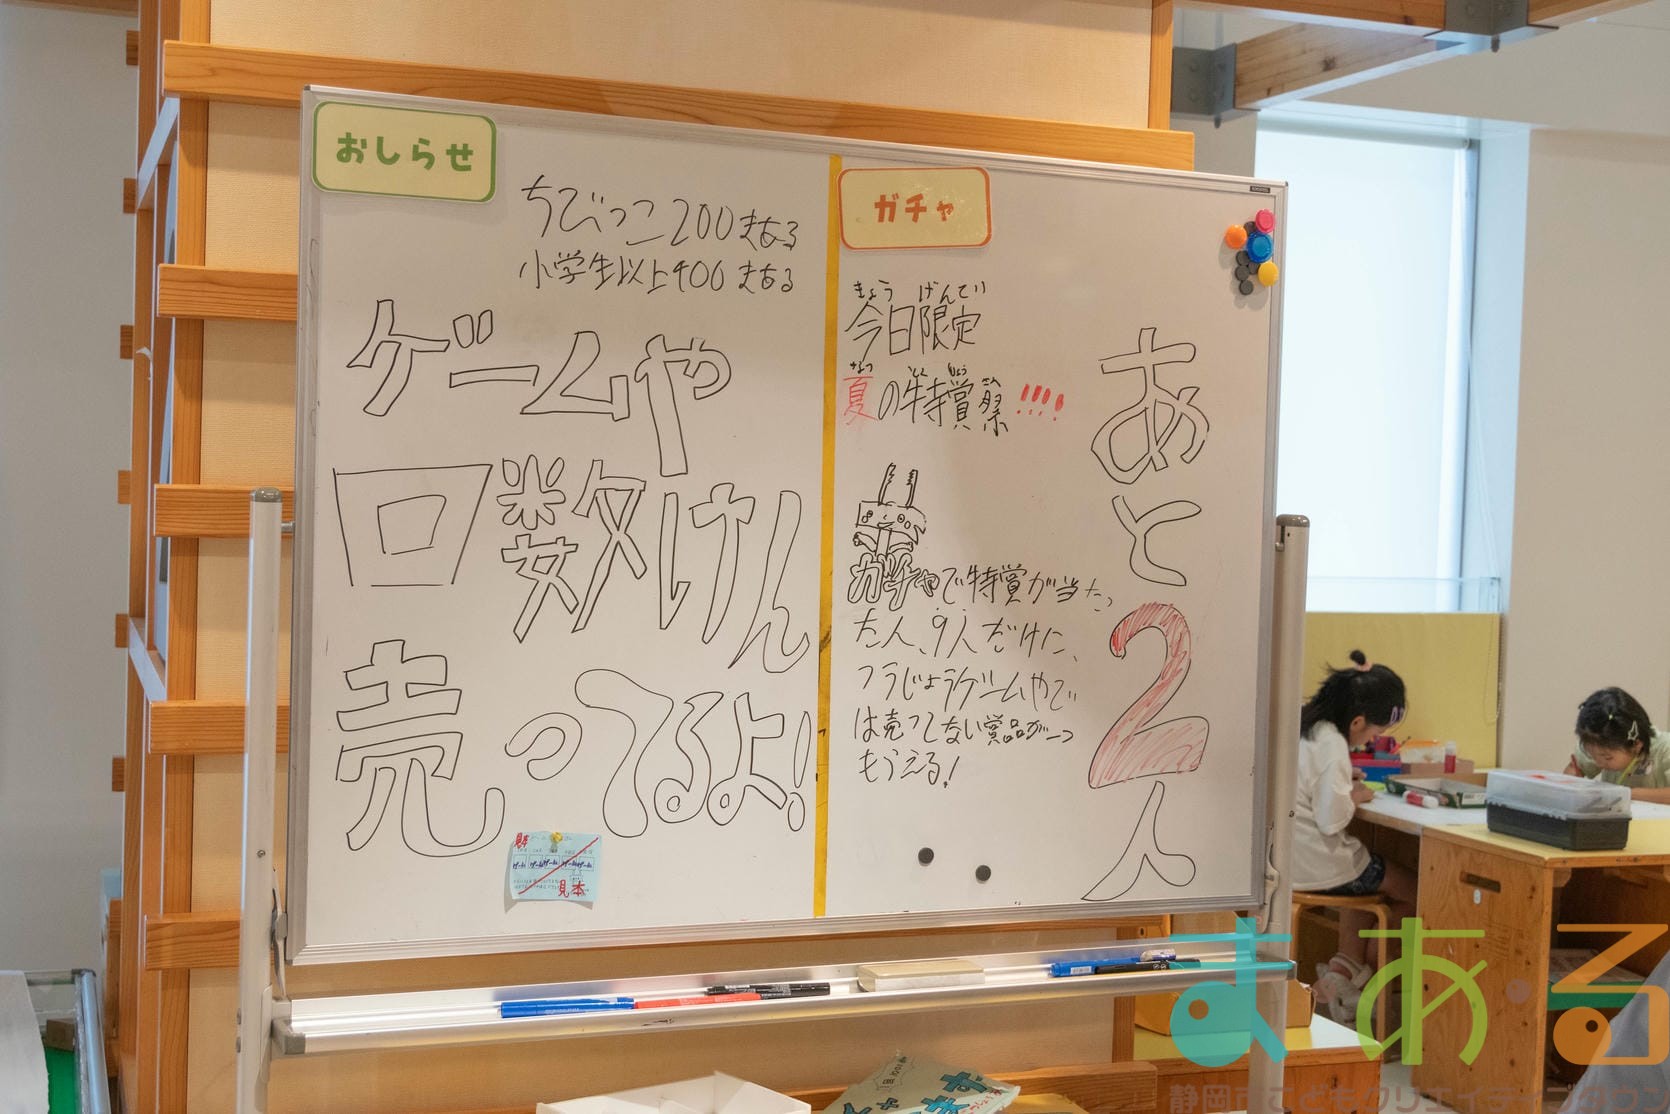 おしらせ
ちびっこ200まある
小学生以上400まある
ゲームや
回数けん
売ってるよ!
見本
見本
ガチャ
きょう げんてい
今日限定
なつ とく しょう さい
夏の特賞祭!!!!
ガチャで特賞が当たっ
た人、9人だけに、
フうじょうゲームやで
は売ってない賞品が一つ
もらえる!
あと2人
まある
静岡市こどもクリエイティブタウン